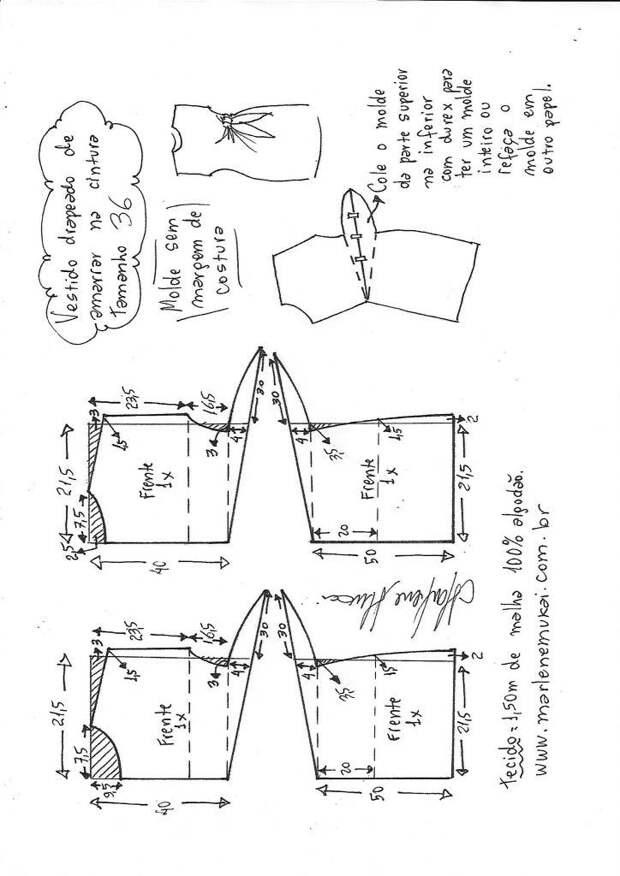 Vestido drapeado de
amarrar na cintura
Tamanho 36
Molde sem
margem de
costura
Cole o molde
da parte superior
na inferior
com durex para
ter um molde
inteiro ou
refaça o
molde em
outro papel.
3
23,5
16,5
30
21,5
1,5
3
4
7,5
2,5
Frente
1x
40
30
4
3,5
1,5
2
Frente
1x
21,5
20
50
3
23,5
16,5
30
21,5
1,5
3
4
7,5
9,5
Frente
1x
40
30
4
3,5
1,5
2
Frente
1x
21,5
20
50
Marlene Mukai
Tecido = 1,50m de malha 100% algodão.
www.marlenemukai.com.br